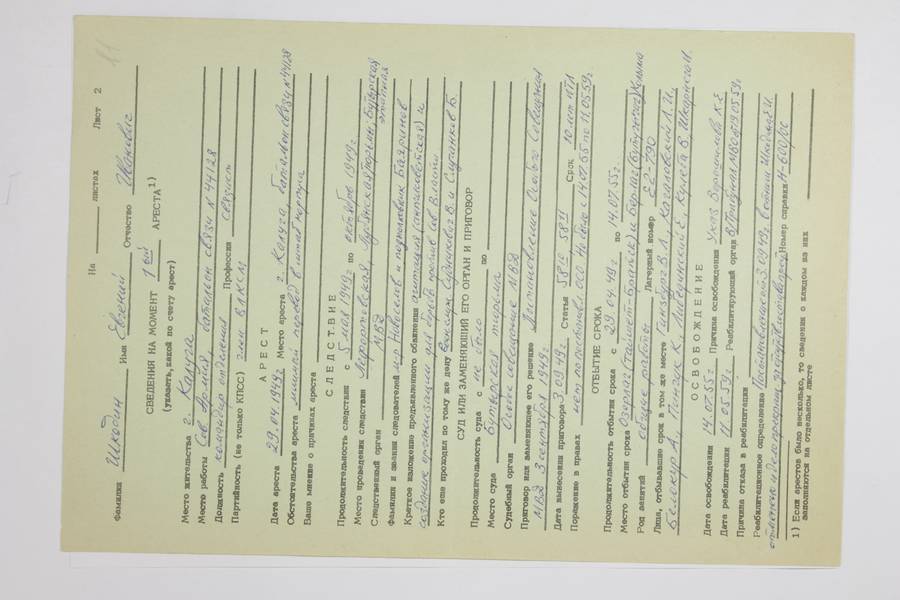 11
На листах Лист 2
Фамилия Шкодин Имя Евгений Отчество Жанович
СВЕДЕНИЯ НА МОМЕНТ 1ый АРЕСТА1)
(указать, какой по счету арест)
Место жительства г. Калуга
Место работы Сов Армия батальон связи № 44128
Должность командир отделения Профессия связист
Партийность (не только КПСС) член ВЛКСМ
АРЕСТ
Дата ареста 29.04.1949г Место ареста г. Калуга, батальон связи №44128
Обстоятельства ареста перевод в штаб корпуса
Ваше мнение о причинах ареста
СЛЕДСТВИЕ
Продолжительность следствия с 5 мая 1949г по октябрь 1949г.
Место проведения следствия Лефортовская, Лубянская тюрьмы, Бутырская
Следственный орган МВД
Фамилии и звания следователей м-р Новоселов и подполковник Бояринов
Краткое изложение предъявленного обвинения агитация (антисоветская) и
создание организации для борьбы против Сов Власти
Кто еще проходил по тому же делу
СУД ИЛИ ЗАМЕНЯЮЩИЙ ЕГО ОРГАН И ПРИГОВОР
Продолжительность суда с не было по
Место суда Бутырская тюрьма
Судебный орган Особое совещание МВД
Приговор или заменяющее его решение Постановление Особого Совещания
МВД 3 сентября 1949г
Дата вынесения приговора 3.09.49г Статья 58-10 58-11 Срок 10 лет ИТЛ
Поражение в правах
ОТБЫТИЕ СРОКА
Продолжительность отбытия срока с 29.04.49г по 14.07.55г.
Место отбытия срока Озерлаг (Тайшет-Братск) и Берлаг (Бутугычаг) Колыма
Род занятий общие работы Лагерный номер
Лица, отбывавшие срок в том же месте Гинзбург В.Л.,
ОСВОБОЖДЕНИЕ
Дата освобождения 14.07.55г Причина освобождения Указ Ворошилова К.Е
Дата реабилитации 11.05.59г Реабилитирующий орган
Причина отказа в реабилитации
Реабилитационное определение Постановление от 3.09.49г
отменено и дело производством прекращено Номер справки Н-600/ос
1) Если арестов было несколько, то сведения о каждом из них
заполняются на отдельном листе